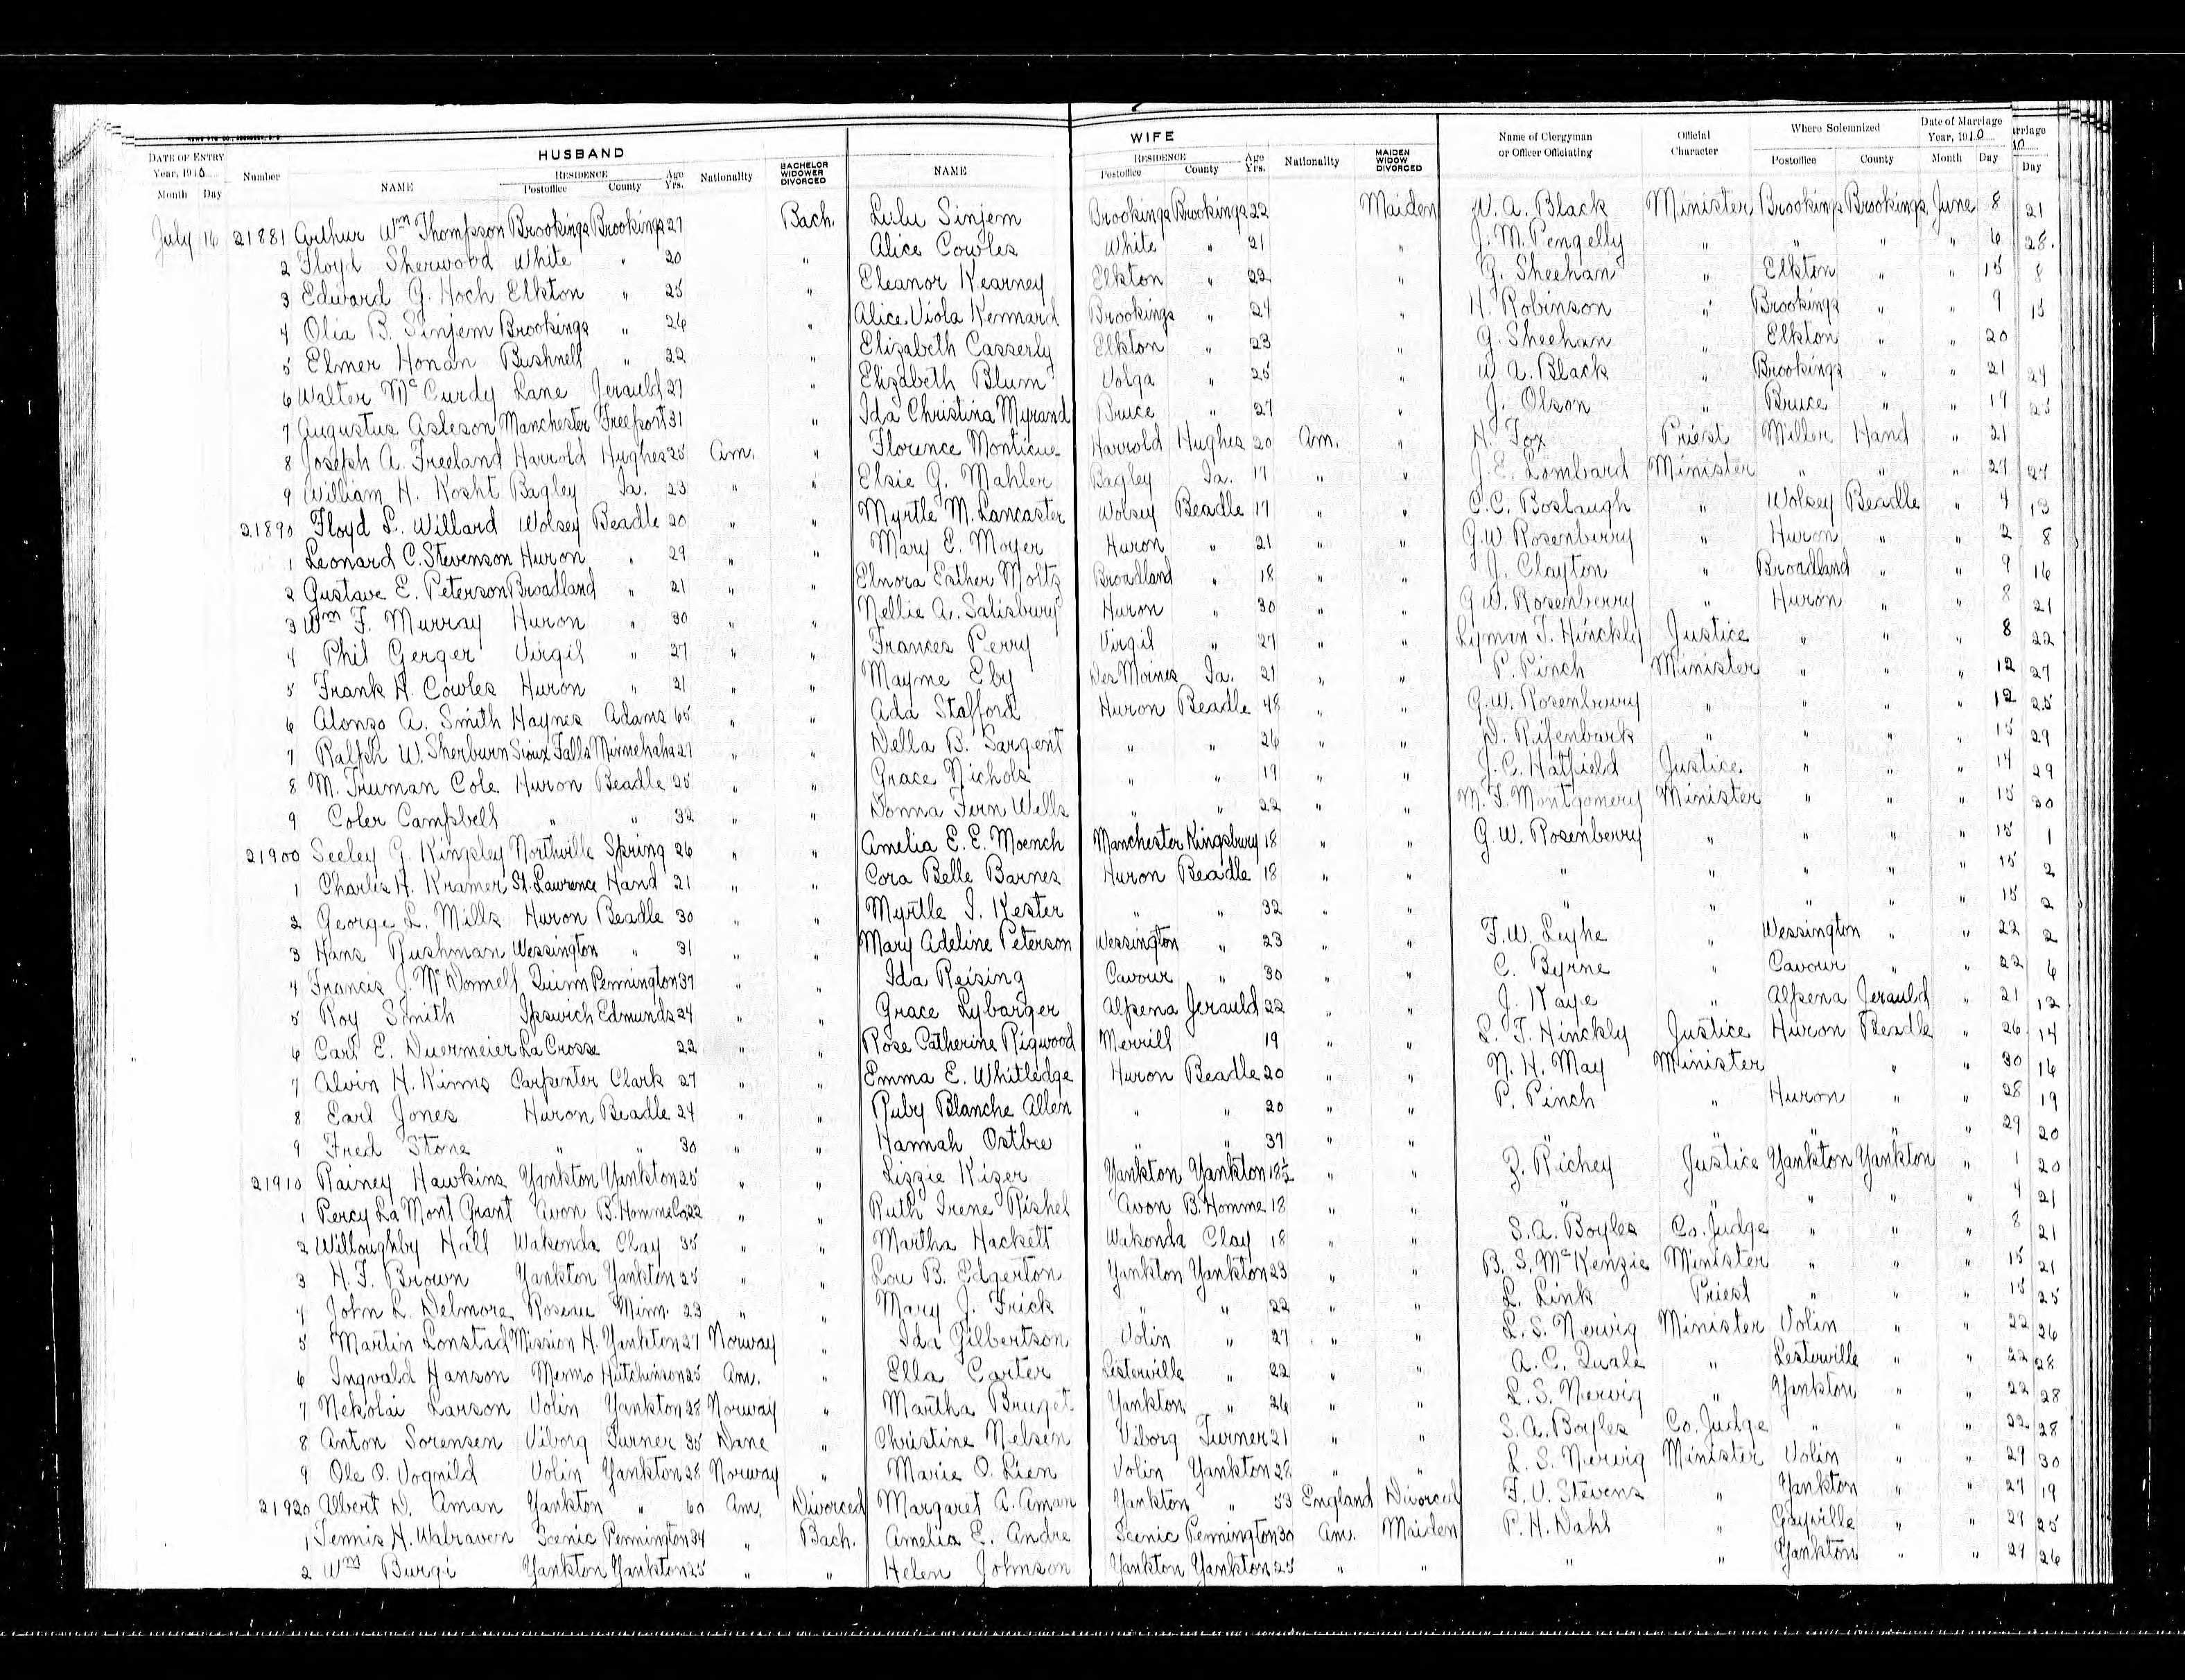 HUSBAND WIFE
DATE OF ENTRY Year, 1910 Month Day Number NAME RESIDENCE Postoffice County Age Yrs. Nationality BACHELOR WIDOWER DIVORCED NAME RESIDENCE Postoffice County Age Yrs. Nationality MAIDEN WIDOW DIVORCED Name of Clergyman or Officer Officiating Official Character Where Solemnized Postoffice County Date of Marriage Year, 1910 Month Day rriage 10 Day
July 16 21881 Arthur Wm Thompson Brookings Brookings 27 Bach. Lulu Sinjem Brookings Brookings 22 Maiden W. A. Black Minister Brookings Brookings June 8 21
2 Floyd Sherwood White " 20 " Alice Cowles White " 21 " J. M. Pengelly " " " " 6 28.
3 Edward G. Hoch Elkton " 25 " Eleanor Kearney Elkton " 22 " G. Sheehan " Elkton " " 15 8
4 Olia B. Sinjem Brookings " 26 " Alice Viola Kennard Brookings " 24 " H. Robinson " Brookings " " 9 15
5 Elmer Honan Bushnell " 22 " Elizabeth Casserly Elkton " 23 " G. Sheehan " Elkton " " 20
6 Walter McCurdy Lane Jerauld 27 " Elizabeth Blum Volga " 25 " W. A. Black " Brookings " " 21 24
7 Augustus Asleson Manchester Freeport 31 " Ida Christina Myrand Bruce " 27 " J. Olson " Bruce " " 17 25
8 Joseph A. Freeland Harrold Hughes 25 Am. " Florence Monticue Harrold Hughes 20 Am. " H. Fox Priest Miller Hand " 21
9 William H. Kosht Bagley Ia. 23 " " Elsie G. Mahler Bagley Ia. 17 " " J. E. Lombard Minister " " " 27 27
21890 Floyd L. Willard Wolsey Beadle 20 " " Myrtle M. Lancaster Wolsey Beadle 17 " " C. C. Boslaugh " Wolsey Beadle " 4 13
1 Leonard C. Stevenson Huron " 29 " " Mary E. Moyer Huron " 21 " " G. W. Rosenberry " Huron " " 2 8
2 Gustave E. Peterson Broadland " 21 " " Elnora Esther Moltz Broadland " 18 " " J. Clayton " Broadland " " 9 16
3 Wm F. Murray Huron " 30 " " Nellie A. Salisbury Huron " 30 " " G. W. Rosenberry " Huron " " 8 21
4 Phil Gerger Virgil " 27 " " Frances Perry Virgil " 27 " " Lyman T. Hinckly Justice " " " 8 22
5 Frank H. Cowles Huron " 21 " " Mayme Eby Des Moines Ia. 21 " " P. Pinch Minister " " " 12 27
6 Alonzo A. Smith Haynes Adams 65 " " Ada Stafford Huron Beadle 48 " " G. W. Rosenberry " " " " 12 25
7 Ralph W. Sherburn Sioux Falls Minnehaha 27 " " Della B. Sargent " " 26 " " D. Rifenbark " " " " 15 29
8 M. Truman Cole Huron Beadle 25 " " Grace Nichols " " 19 " " J. C. Hatfield Justice " " " 14 29
9 Coler Campbell " " 32 " " Donna Fern Wells " " 22 " " M. F. Montgomery Minister " " " 15 30
21900 Seeley G. Kingsley Northville Spring 26 " " Amelia E. E. Moench Manchester Kingsbury 18 " " G. W. Rosenberry " " " " 15 1
1 Charles H. Kramer St. Lawrence Hand 21 " " Cora Belle Barnes Huron Beadle 18 " " " " " " " 15 2
2 George L. Mills Huron Beadle 30 " " Myrtle I. Kester " " 32 " " " " " " " 15 2
3 Hans Rushman Wessington " 31 " " Mary Adeline Peterson Wessington " 23 " " F. W. Leyhe " Wessington " " 22 2
4 Francis J. McDonnell Quinn Pennington 37 " " Ida Reising Cavour " 30 " " C. Byrne " Cavour " " 22 6
5 Roy Smith Ipswich Edmunds 24 " " Grace Lybarger Alpena Jerauld 22 " " J. Kaye " Alpena Jerauld " 21 12
6 Carl E. Duermeier La Crosse 22 " " Rose Catherine Rigwood Merrill 19 " " L. T. Hinckly Justice Huron Beadle " 26 14
7 Alvin H. Kinns Carpenter Clark 27 " " Emma E. Whitledge Huron Beadle 20 " " N. H. May Minister " " 30 16
8 Earl Jones Huron Beadle 24 " " Ruby Blanche Allen " " 20 " " P. Pinch " Huron " " 28 19
9 Fred Stone " " 30 " " Hannah Ostbee " " 37 " " " " " " " 29 20
21910 Rainey Hawkins Yankton Yankton 25 " " Lizzie Kizer Yankton Yankton 18½ " " Z. Richey Justice Yankton Yankton " 1 20
1 Percy La Mont Grant Avon B. Homme Co. 22 " " Ruth Irene Rishel Avon B. Homme 18 " " " " " " " 4 21
2 Willoughby Hall Wakonda Clay 35 " " Martha Hackett Wakonda Clay 18 " " S. A. Boyles Co. Judge " " " 8 21
3 H. F. Brown Yankton Yankton 25 " " Lou B. Edgerton Yankton Yankton 23 " " B. S. McKenzie Minister " " " 15 21
4 John L. Delmore Roseau Minn. 23 " " Mary J. Frick " " 22 " " L. Link Priest " " " 15 25
5 Martin Lonstad Mission H. Yankton 27 Norway " Ida Gilbertson Volin " 27 " " L. S. Nervig Minister Volin " " 22 26
6 Ingwald Hanson Menno Hutchinson 25 Am. " Ella Carter Lesterville " 22 " " A. C. Quale " Lesterville " " 22 28
7 Nekolai Larson Volin Yankton 28 Norway " Martha Bruget Yankton " 26 " " L. S. Nervig " Yankton " " 22 28
8 Anton Sorensen Viborg Turner 35 Dane " Christine Nelsen Viborg Turner 21 " " S. A. Boyles Co. Judge " " " 22 28
9 Ole O. Vognild Volin Yankton 28 Norway " Marie O. Lien Volin Yankton 28 " " L. S. Nervig Minister Volin " " 29 30
21920 Albert D. Aman Yankton " 60 Am. Divorced Margaret A. Aman Yankton " 53 England Divorced F. V. Stevens " Yankton " " 27 19
1 Tennis H. Walraven Scenic Pennington 34 " Bach. Amelia E. Andre Scenic Pennington 30 Am. Maiden P. H. Dahl " Gayville " " 29 25
2 Wm Burgi Yankton Yankton 25 " " Helen Johnson Yankton Yankton 25 " " " " Yankton " " 29 26